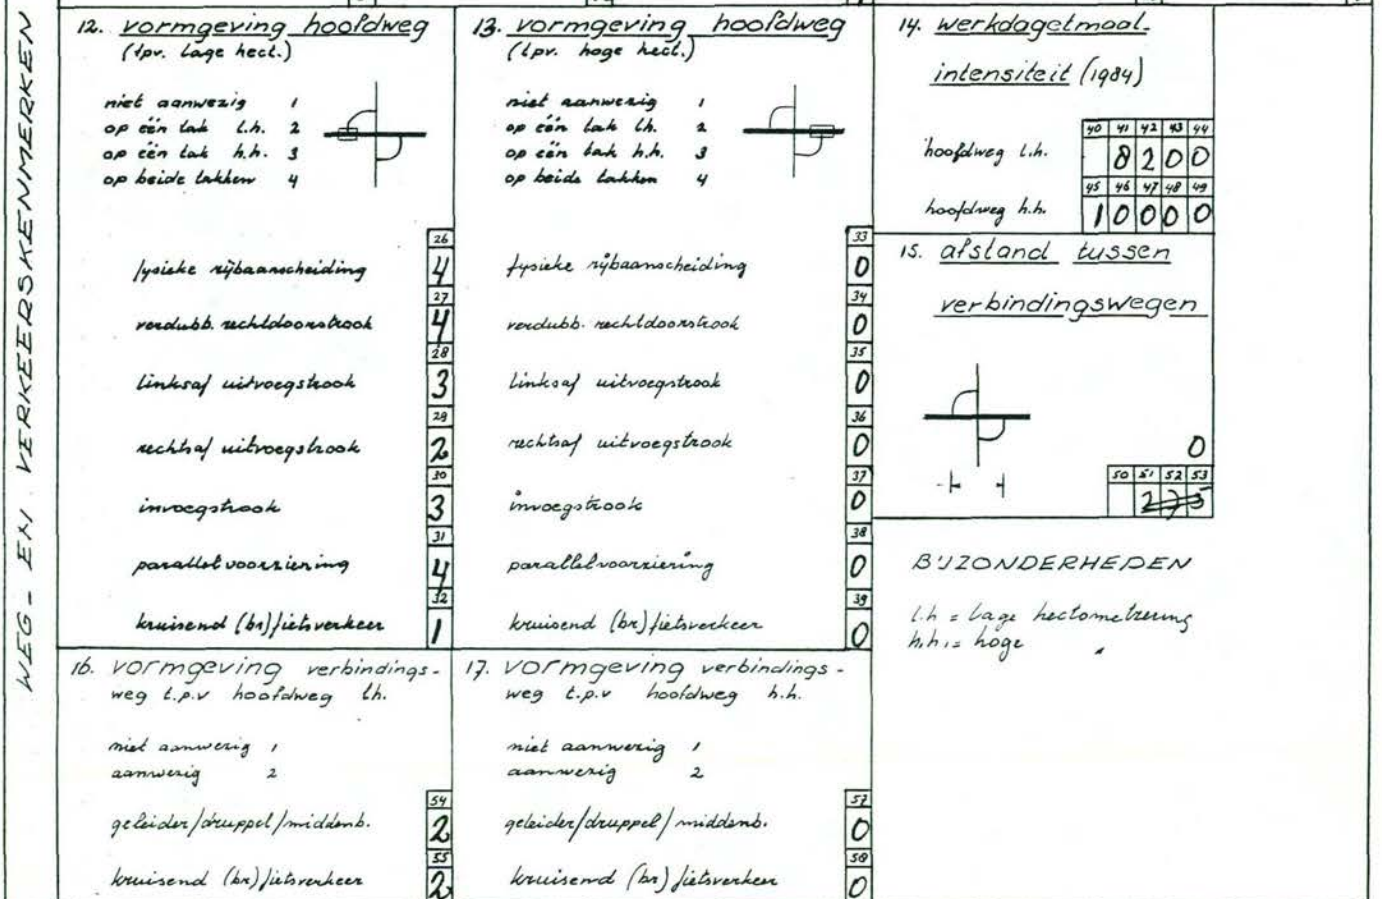 WEG- EN VERKEERSKENMERKEN
12. vormgeving hoofdweg
(tpv. lage hect.)
niet aanwezig 1
op één tak l.h. 2
op één tak h.h. 3
op beide takken 4
26
fysieke rijbaanscheiding 4
27
verdubb. rechtdoorstrook 4
28
linksaf uitvoegstrook 3
29
rechtsaf uitvoegstrook 2
30
invoegstrook 3
31
parallelvoorziening 4
32
kruisend (br)fietsverkeer 1
13. vormgeving hoofdweg
(tpv. hoge hect.)
niet aanwezig 1
op één tak l.h. 2
op één tak h.h. 3
op beide takken 4
33
fysieke rijbaanscheiding 0
34
verdubb. rechtdoorstrook 0
35
linksaf uitvoegstrook 0
36
rechtsaf uitvoegstrook 0
37
invoegstrook 0
38
parallelvoorziening 0
39
kruisend (br)fietsverkeer 0
14. werkdagetmaal-
intensiteit (1984)
40 41 42 43 44
hoofdweg l.h. 8200
45 46 47 48 49
hoofdweg h.h. 10000
15. afstand tussen
verbindingswegen
0
50 51 52 53
275
BIJZONDERHEDEN
l.h = lage hectometrering
h.h. = hoge "
16. vormgeving verbindings-
weg t.p.v hoofdweg l.h.
niet aanwezig 1
aanwezig 2
54
geleider/druppel/middenb. 2
55
kruisend (br)fietsverkeer 2
17. vormgeving verbindings-
weg t.p.v hoofdweg h.h.
niet aanwezig 1
aanwezig 2
57
geleider/druppel/middenb. 0
58
kruisend (br)fietsverkeer 0